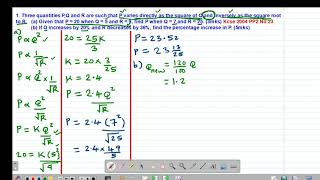 1. Three quantities P,Q and R are such that P varies directly as the square of Q and inversely as the square root
to R. (a) Given that P = 20 when Q = 5 and R = 9, find P when Q = 7 and R = 25. (5mks) Kcse 2004 PP2 No 23
(b) If Q increases by 20% and R decreases by 36%, find the percentage increase in P. (5mks)
a)
P ∝ Q²
P ∝ 1/√R
P ∝ Q²/√R
P = K Q²/√R
20 = K(5)²
20 = 25K/3
K = 20 × 3/25
K = 2.4
P = 2.4(7²)/√25
= 2.4 × 49/5
P = 23.52
P = 23 13/25
b) Q new = 120/100 Q
= 1.2